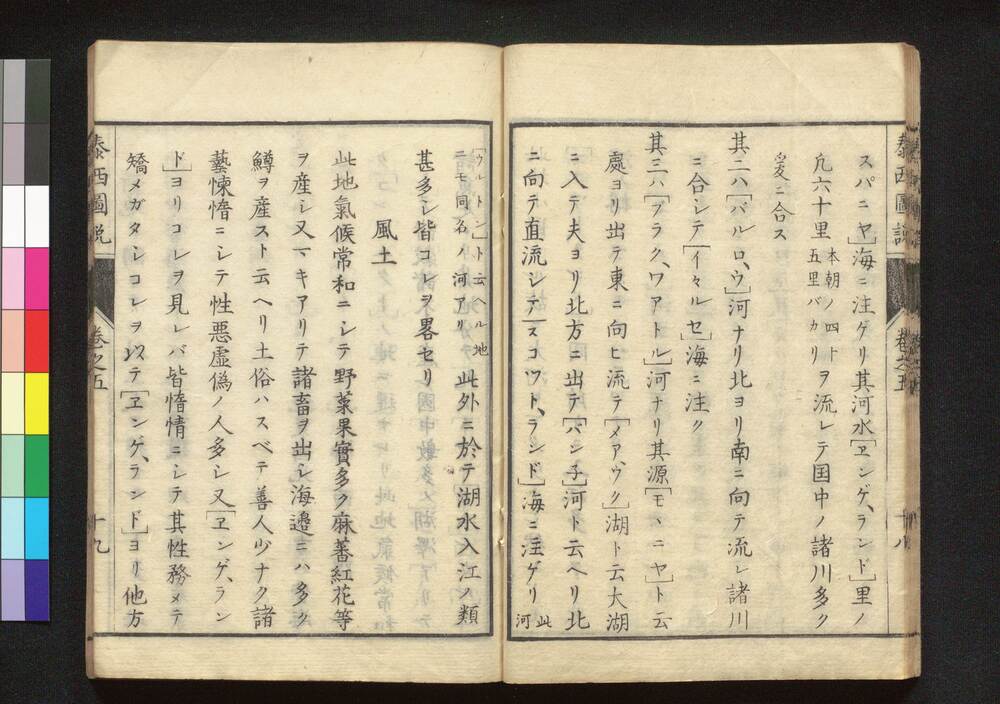 スパニヤ」海ニ注ゲリ其河水「ヱンゲ、ランド」里ノ
凢六十里 本朝ノ四十五里バカリ ヲ流レテ国中ノ諸川多ク
爰ニ合ス
其二ハ「バルロ、ウ」河ナリ北ヨリ南ニ向テ流レ諸川
ニ合シテ「イヽルセ」海ニ注ク
其三ハ「ブラク、ワアトル」河ナリ其源「モヽニヤ」ト云
處ヨリ出テ東ニ向ヒ流テ「メアウク」湖ト云大湖
ニ入テ夫ヨリ北方ニ出テ「バン子」河ト云ヘリ北
ニ向テ直流シテ「スコツト、ランド」海ニ注ゲリ 此河
「ウルトン」ト云ヘル地ニモ同名ノ河アリ 此外ニ於テ湖水入江ノ類
甚多シ皆コレヲ畧セリ
風土
此地氣候常和ニシテ野菜果實多ク麻蕃紅花等
ヲ産シ又マキアリテ諸畜ヲ出シ海邉ニハ多ク
鱒ヲ産スト云ヘリ土俗ハスベテ善人少ナク諸
藝惰ニシテ性悪虚偽ノ人多シ又「ヱンゲ、ラン
ド」ヨリコレヲ見レバ皆惰情ニシテ其性務メテ
矯メガタシコレヲ以テ「ヱンゲ、ランド」ヨリ他方
泰西圖説
卷之五
十八
泰西圖説
卷之五
十九